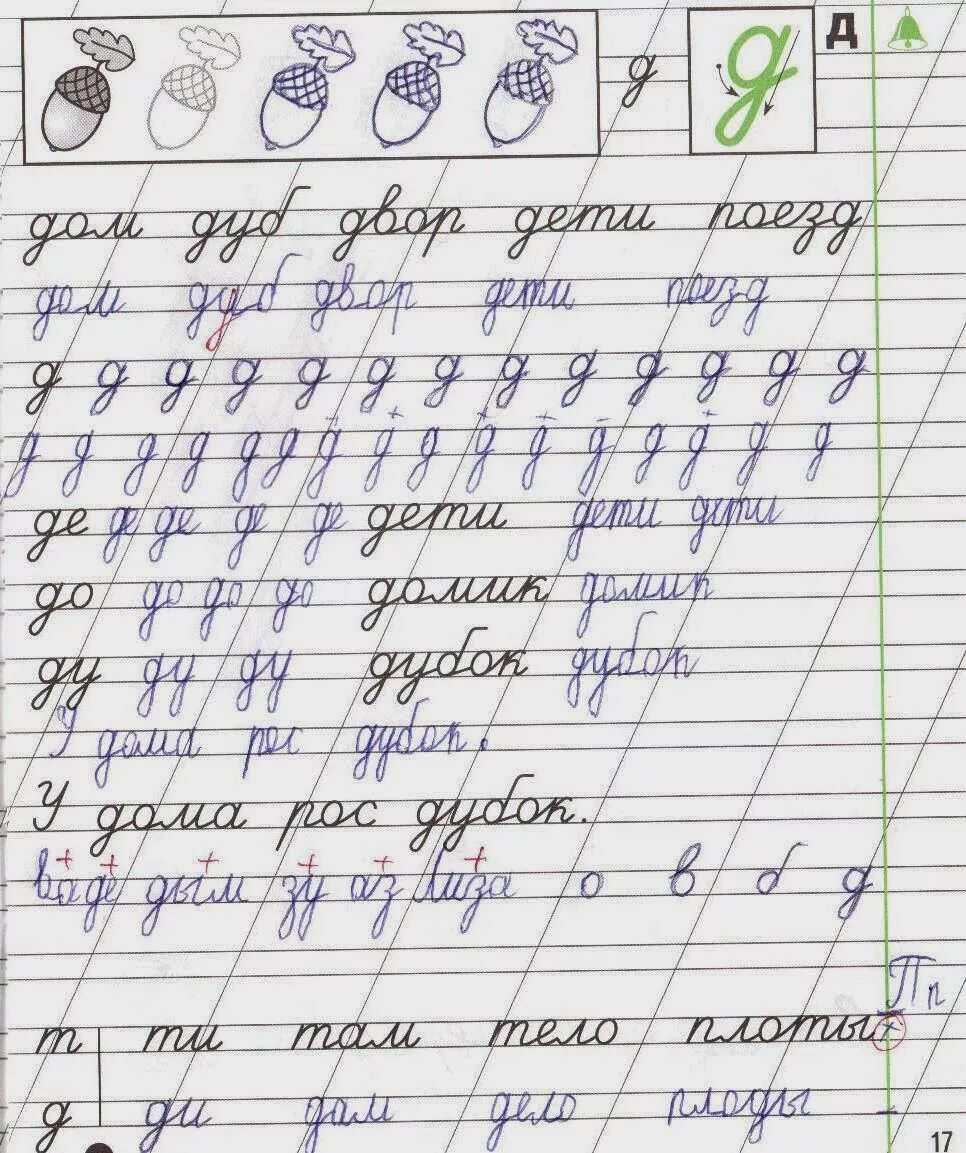 д д Д
дом дуб двор дети поезд
дом дуб двор дети поезд
д д д д д д д д д д д д д
д д д д д д д д д д д д д д д д
де де де де де дети дети дети
до до до до домик домик
ду ду ду дубок дубок
У дома рос дубок.
У дома рос дубок.
ва де дым зу аз лиза о в б д
Пп
т ти там тело плоты
д ди дам дело плоды
17